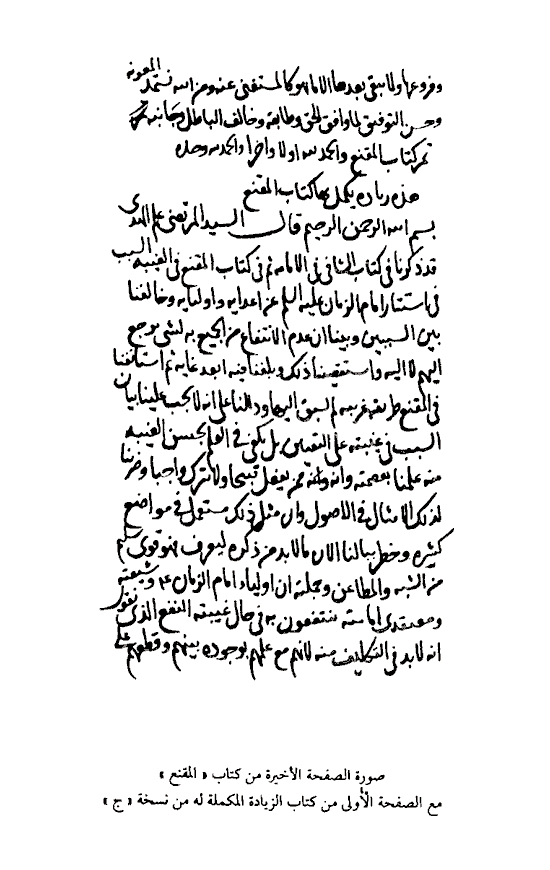 وفروعها ولا يبقى بعدها الا ما هو كالمستغنى عنه ومن الله نستمد المعونة
وحسن التوفيق لما وافق الحق وطابقه وخالف الباطل وجانبه
تم كتاب المقنع والحمد لله اولا واخرا والحمد لله وحده
هذه زياده يكمل بها كتاب المقنع
بسم الله الرحمن الرحيم قال السيد المرتضى علم الهدى
قد ذكرنا في كتاب الشافي في الامامه ثم في كتاب المقنع في الغيبه السبب
في استتار امام الزمان عليه السلم عن اعدايه واوليايه وخالفنا
بين السببين وبينا ان عدم الانتفاع من الجميع به لشي يرجع
اليهم لا اليه واستقصينا ذلك وبلغنا فيه ابعد غايه ثم استانفنا
في المقنع طريقه غريبه لم نسبق اليها ودللنا على انه لا يجب علينا بيان
السبب في غيبته على التعيين بل يكفي في العلم بحسن الغيبه
منه علمنا بعصمته وانه ممن لا يفعل قبيحا ولا يترك واجبا وضربنا
لذلك الامثال في الاصول وان مثل ذلك مستعمل في مواضع
كثيره وخطر ببالنا الان ما لا بد من ذكره ليعرف فهو قوى
من الشبه والمطاعن وجملته ان اولياء امام الزمان ع وشيعته
ومعتقدى امامته ينتفعون به في حال غيبته النفع الذى نقول
انه لا بد في التكليف منه لانهم مع علمهم بوجوده بينهم وقطعهم على
صورة الصفحة الأخيرة من كتاب « المقنع »
مع الصفحة الأولى من كتاب الزيادة المكملة له من نسخة « ج »